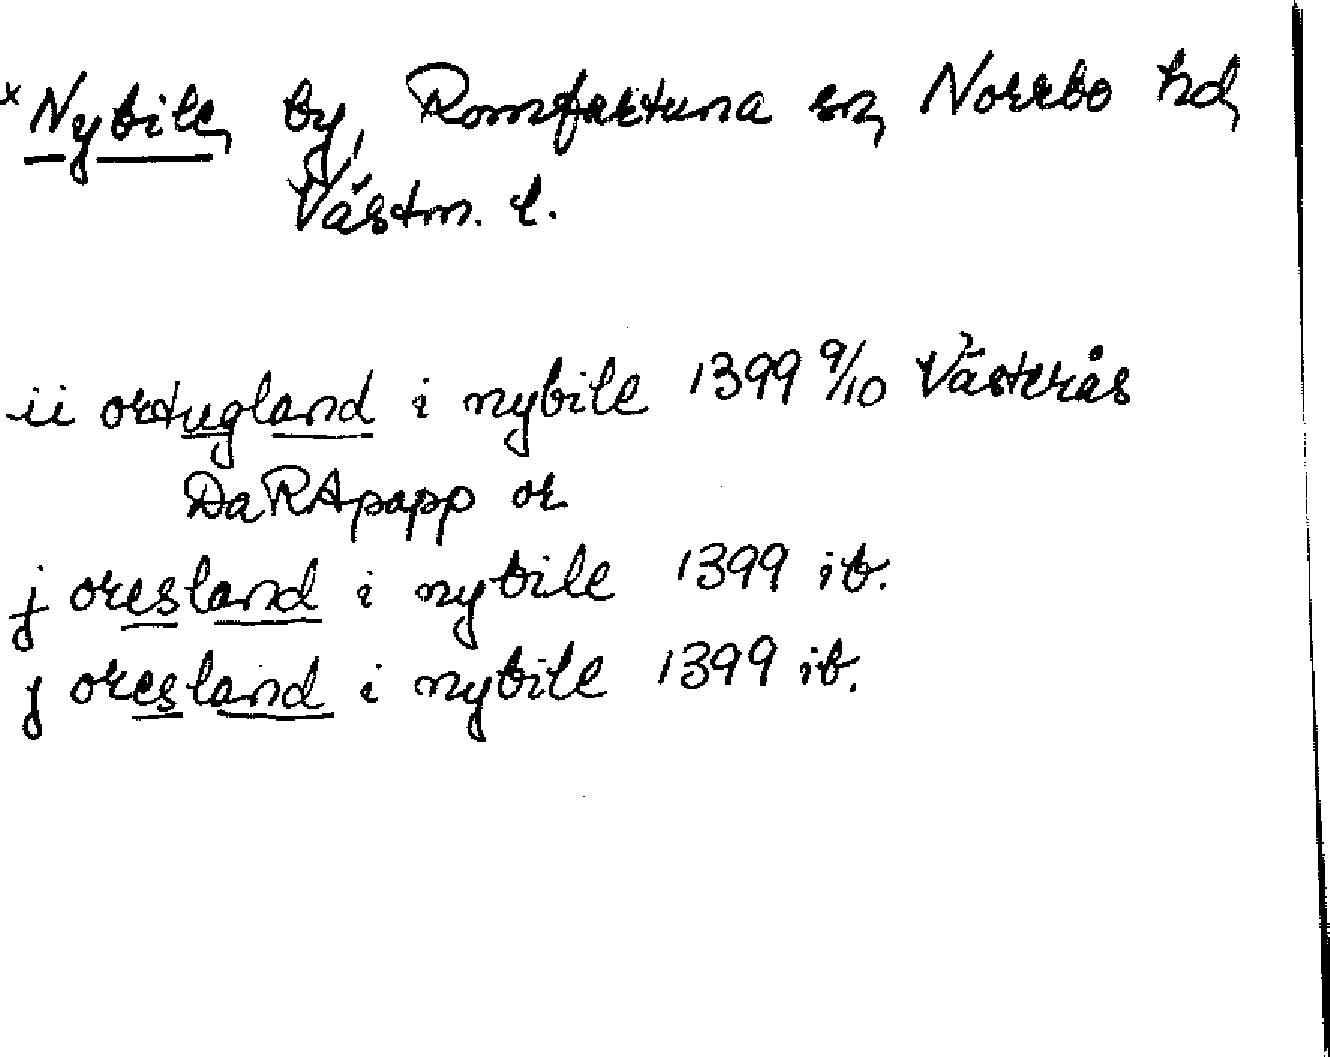 x Nybile, by, Romfartuna sn, Norrbo hd,
Västm. l.
ii ortugland i nybile 1399 9/10 Västerås
DaRApapp or
j oresland i nybile 1399 ib.
j oresland i nybile 1399 ib.